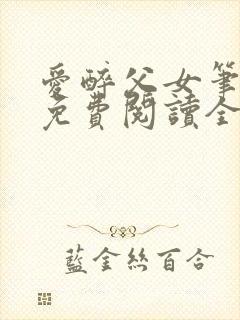 愛醉父女筆
免費閱讀全
藍金絲百合